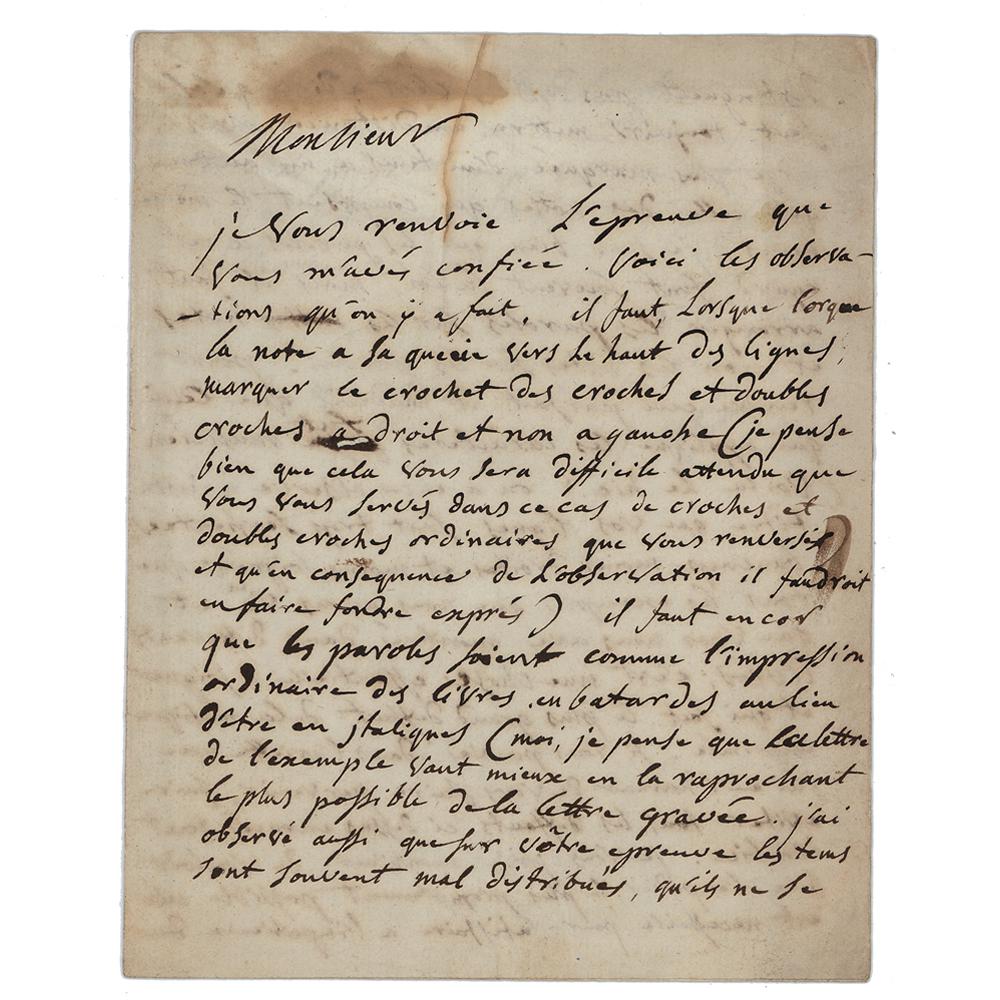 Monsieur
je Vous renvoie L'epreuve que
Vous m'avés confiée. Voici les observa-
-tions qu'on y a fait. il faut, Lorsque lorque
la note a sa queüe vers le haut des lignes,
marquer le crochet des croches et doubles
croches a droit et non a gauche (je pense
bien que cela Vous sera difficile attendu que
Vous Vous servés dans ce cas de croches et
doubles croches ordinaires que vous renversés
et qu'en consequence de L'observation il faudroit
en faire fondre exprés) il faut encor
que les paroles soient comme l'impression
ordinaire des livres en batardes au lieu
d'etre en jtaliques (moi, je pense que La lettre
de l'exemple vaut mieux en la raprochant
le plus possible de la lettre gravée. j'ai
observé aussi que sur vôtre epreuve les tems
sont souvent mal distribués, qu'ils ne se